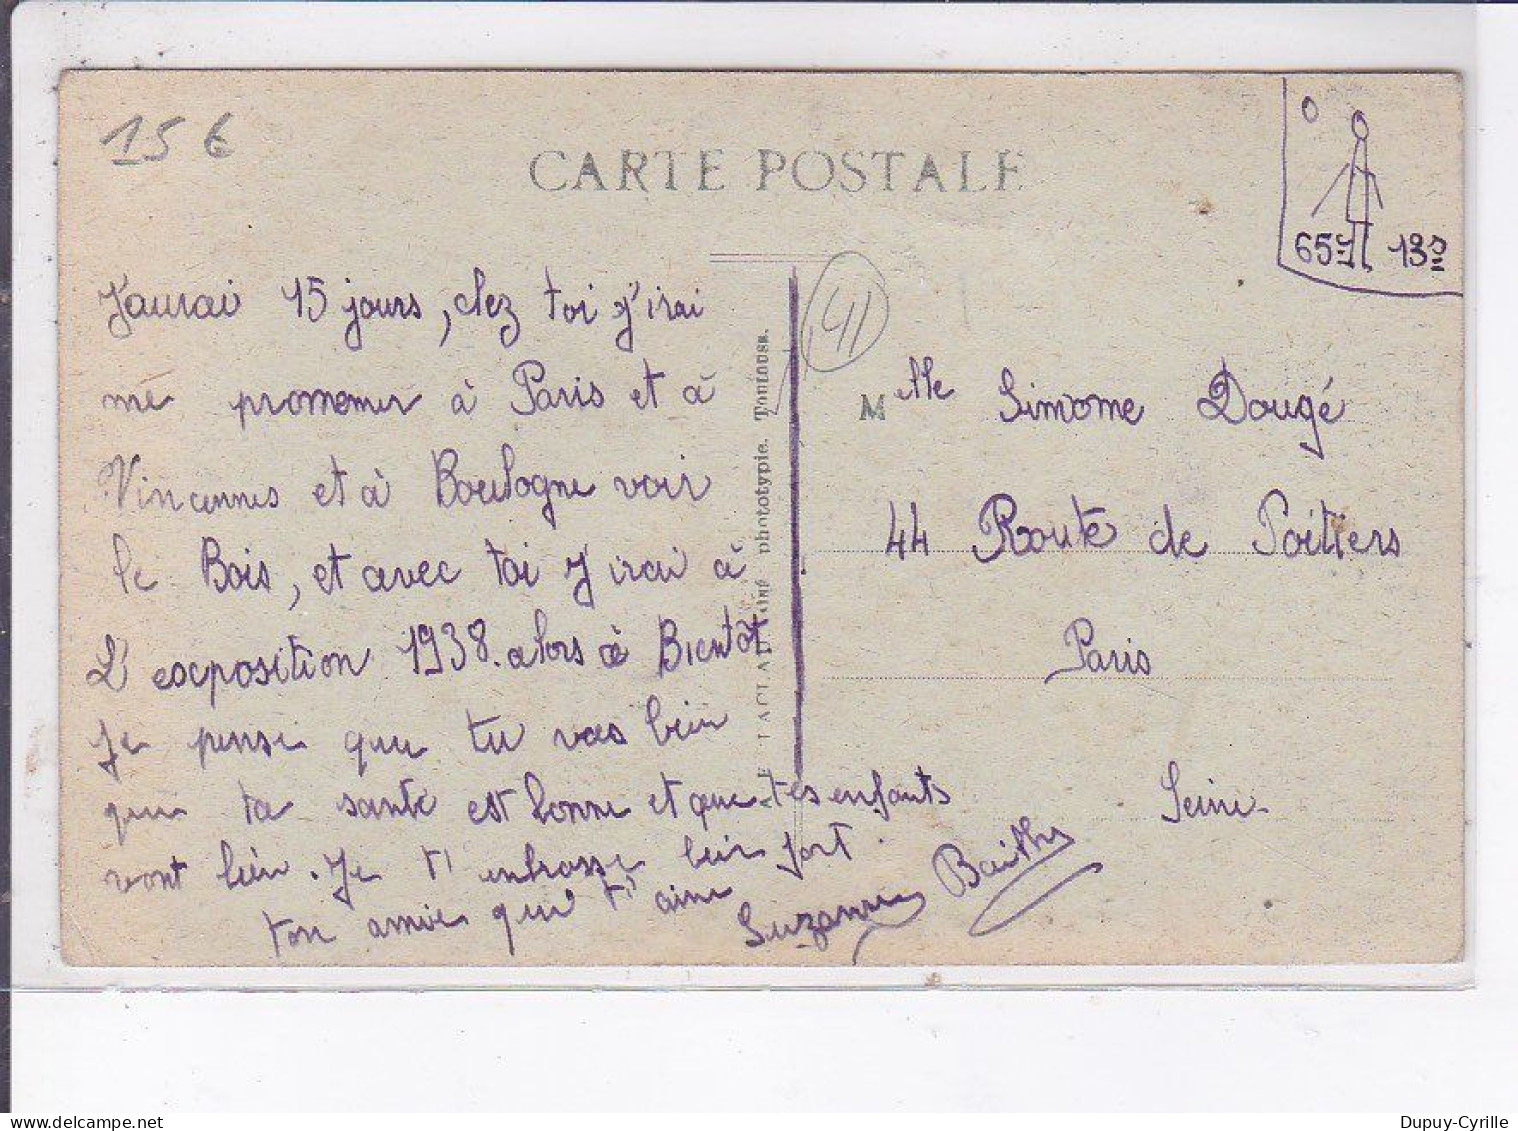 15 €
CARTE POSTALE
65 13
J'aurai 15 jours, chez toi j'irai
me promener à Paris et à
Vincennes et à Boulogne voir
le Bois, et avec toi j'irai à
L'exposition 1938. alors à Bientôt
Je pense que tu vas bien
que ta santé est bonne et que tes enfants
vont bien. Je t'embrasse bien fort.
ton amie qui t'aime
Suzanne
phototypie. Toulouse.
41
Melle Simone Dougé
44 Route de Poitiers
Paris
Seine
Dupuy-Cyrille